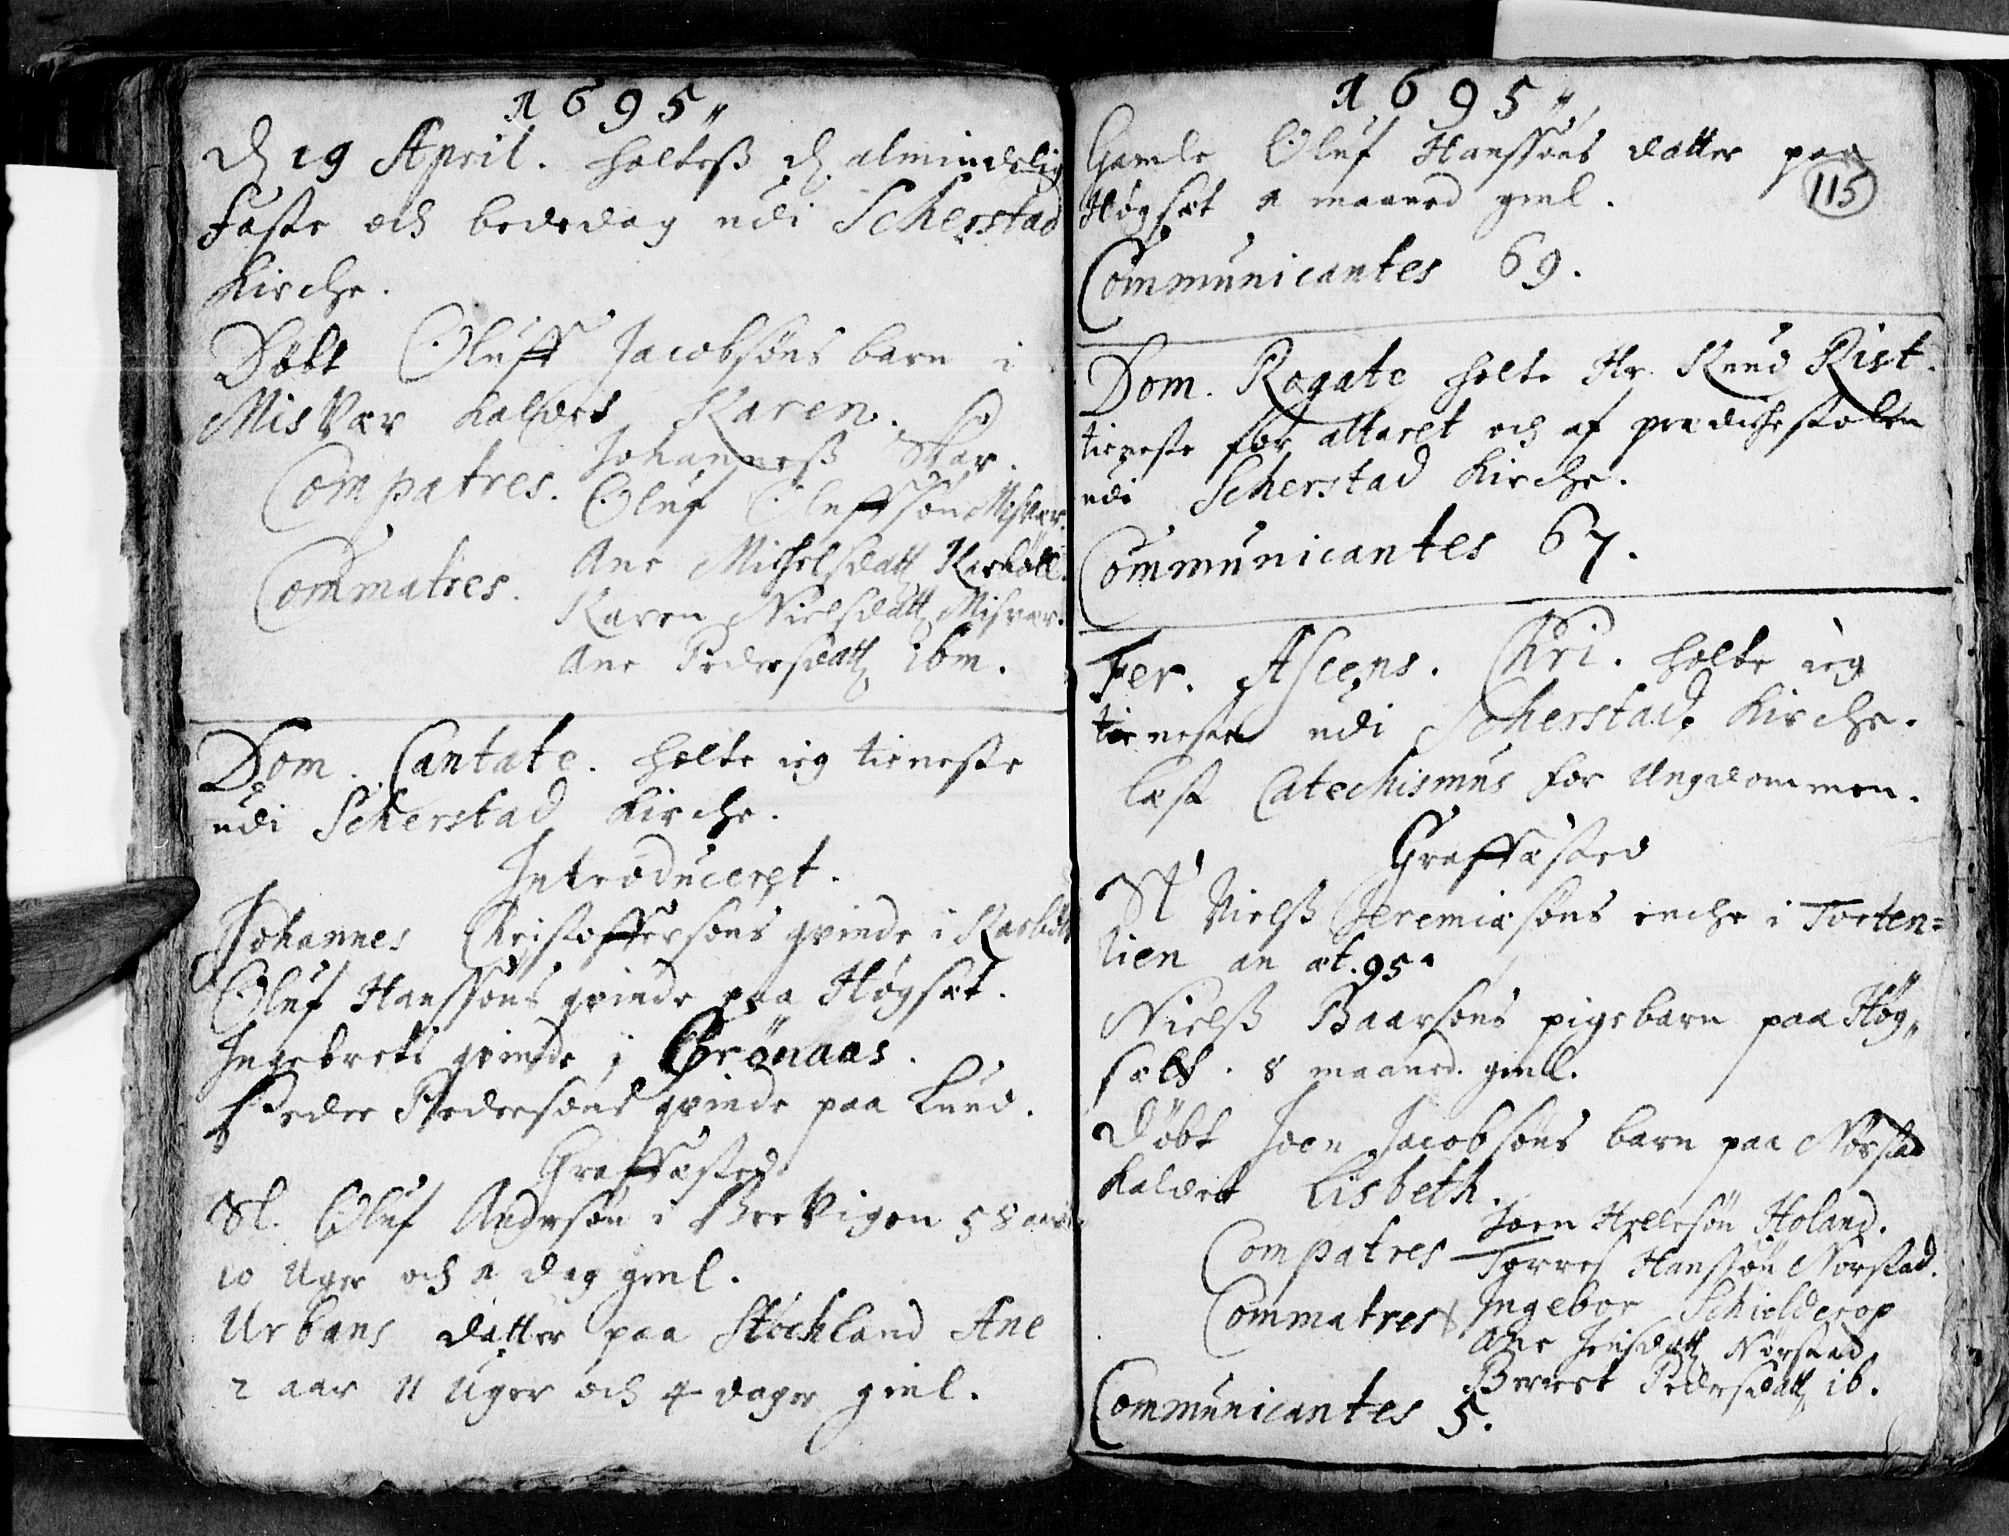 1695,,
D 19 April. holtes d almindelig
Faste och bededag udi Scherstad
Kirche.
Døbt Oluff Jacobsøns barn i
Misvær kaldet Karen.
Compatres. Johanness Skar.
Oluf Oluffsøn Misvær.
Commatres. Ane Michelsdatt
Karen Nielsdatt Misvær.
Ane Pedersdatt ibm.
Dom. Cantate. holte ieg tieneste
udi Scherstad Kirche.
Introduceret.
Johannes Christoffersøns qvinde i
Oluf Hanssøns qvinde paa Høgset.
Ingebrets qvinde i Grønaas.
Peder Pedersøns qvinde paa Lund.
Graffæsted
Sl. Oluf Andersøn i Brevigen 58 aar
10 Uger och 1 dag gml.
Urbans datter paa Støckland Ane
2 aar 11 Uger och 4 dager gml.
1695,,
Gamle Oluf Hanssøns datter paa
115
Høgset 1 maaned gml.
Communicantes 69.
Dom. Rogate holte Hr. Knud Rist.
tieneste for altaret och af prædichestolen
udi Scherstad Kirche.
Communicantes 67.
Fer. Ascens. Chri. holte ieg
tieneste udi Scherstad Kirche.
læst Catechismus for Ungdommen.
Graffæsted
Sl Nielss Jeremiæsøns enche i Torten=
lien an æt. 95.
Nielss Baarsøns pigebarn paa Høg,,
sætt. 8 maaned. gmll.
Døbt Joen Jacobsøns barn paa Nørstad
kaldet Lisbeth.
Compatres Joen Hellesøn Høland.
Torres Hanssøn Nørstad.
Commatres Ingebor Schielderop
Ane Jensdatt Nørstad
Berret Pedersdatt ib.
Communicantes 5.